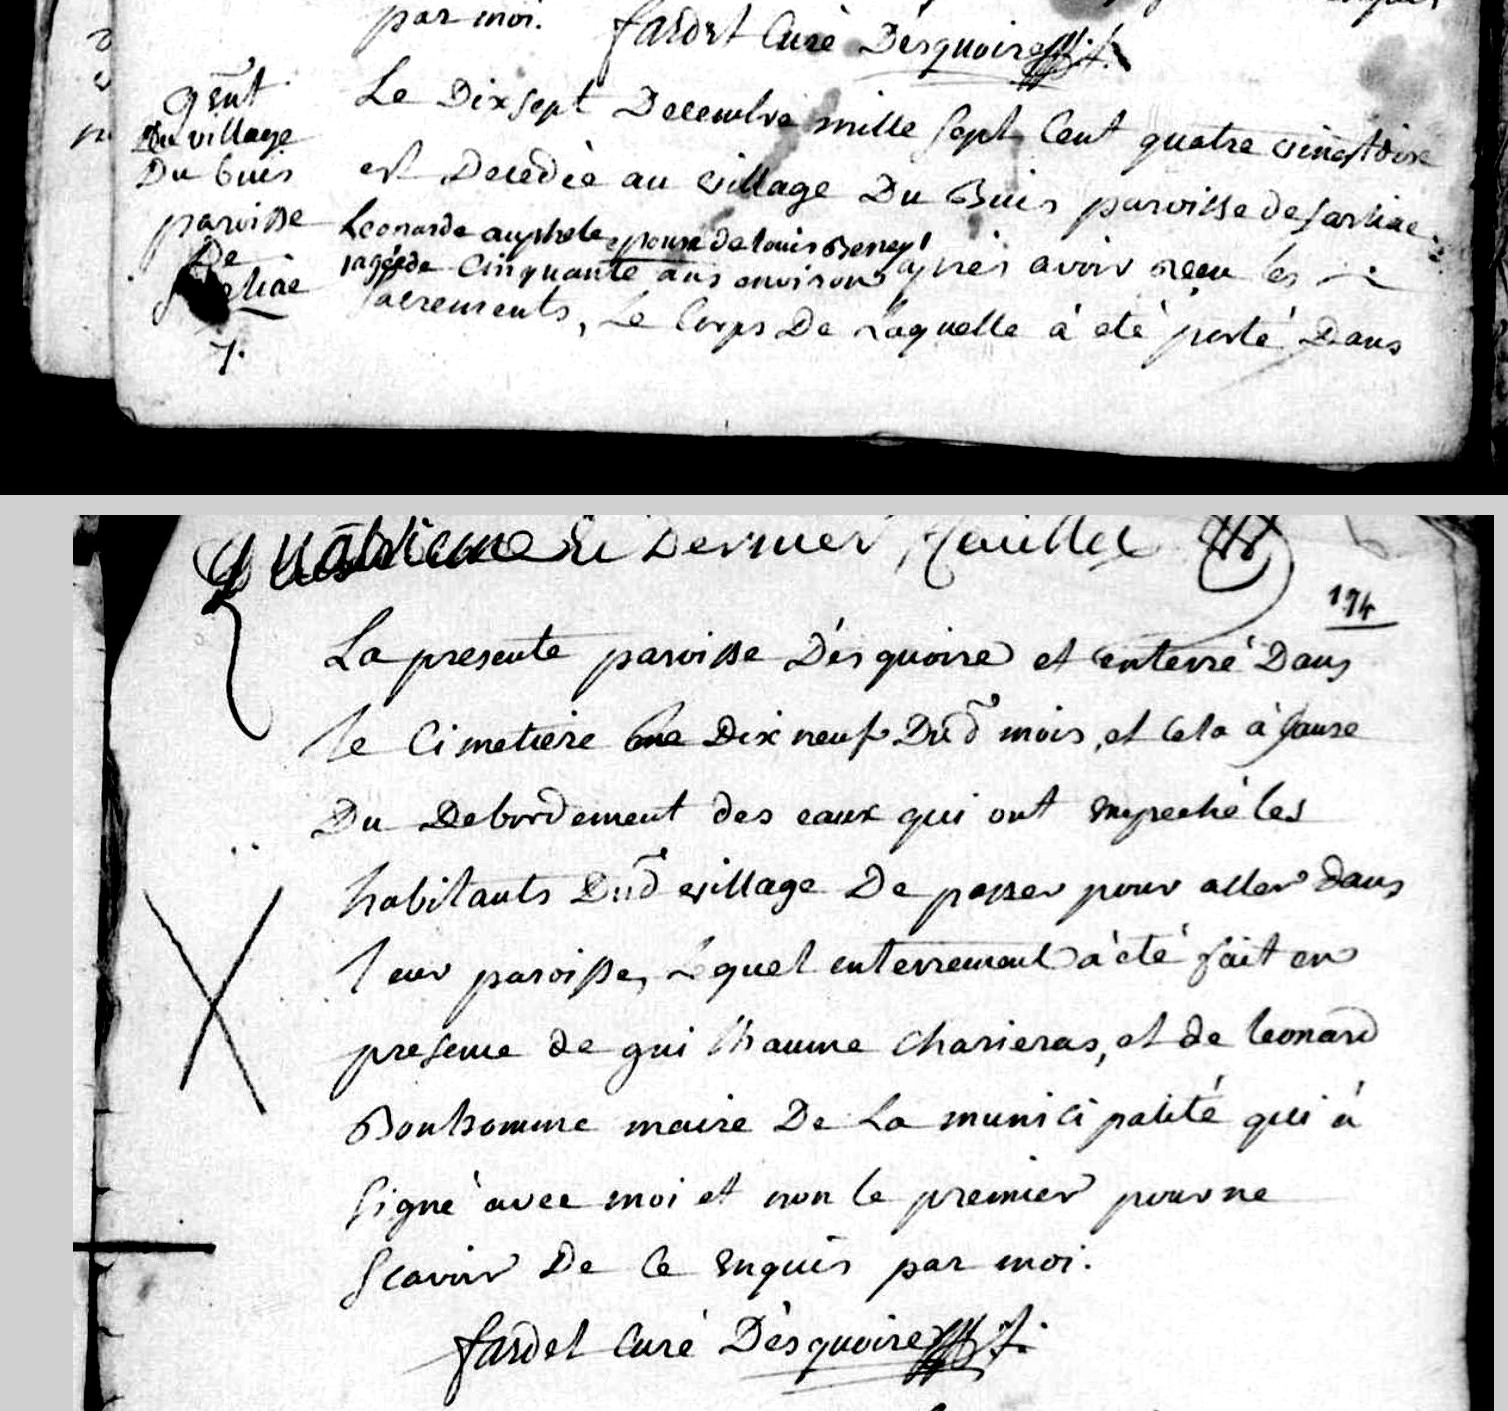 par moi.
fardet Curé Désquoire
Le Dix sept Decembre mille sept Cent quatre vingt onze
est Decedée au village Du Buis paroisse de Sarliac
Leonarde epouse de louis
agée de Cinquante ans environ apries avoir reçu les
sacrements, Le Corps De Laquelle à eté porté Dans
Du village
Du buis
paroisse
De
7.
Quatrieme et Dernier feuillet
194
La presente paroisse Désquoire et enterré Dans
le Cimetiere Le Dix neuf Dud mois, et Cela à Cause
Du Debordement des eaux qui ont empeché les
habitants Dud village De passer pour aller dans
leur paroisse, Lequel enterrement à eté fait en
presence de guilhaume Charieras, et de leonard
Bonhomme maire De La municipalité qui à
signé avec moi et non le premier pour ne
scavoir De Ce enquis par moi.
fardet Curé Désquoire